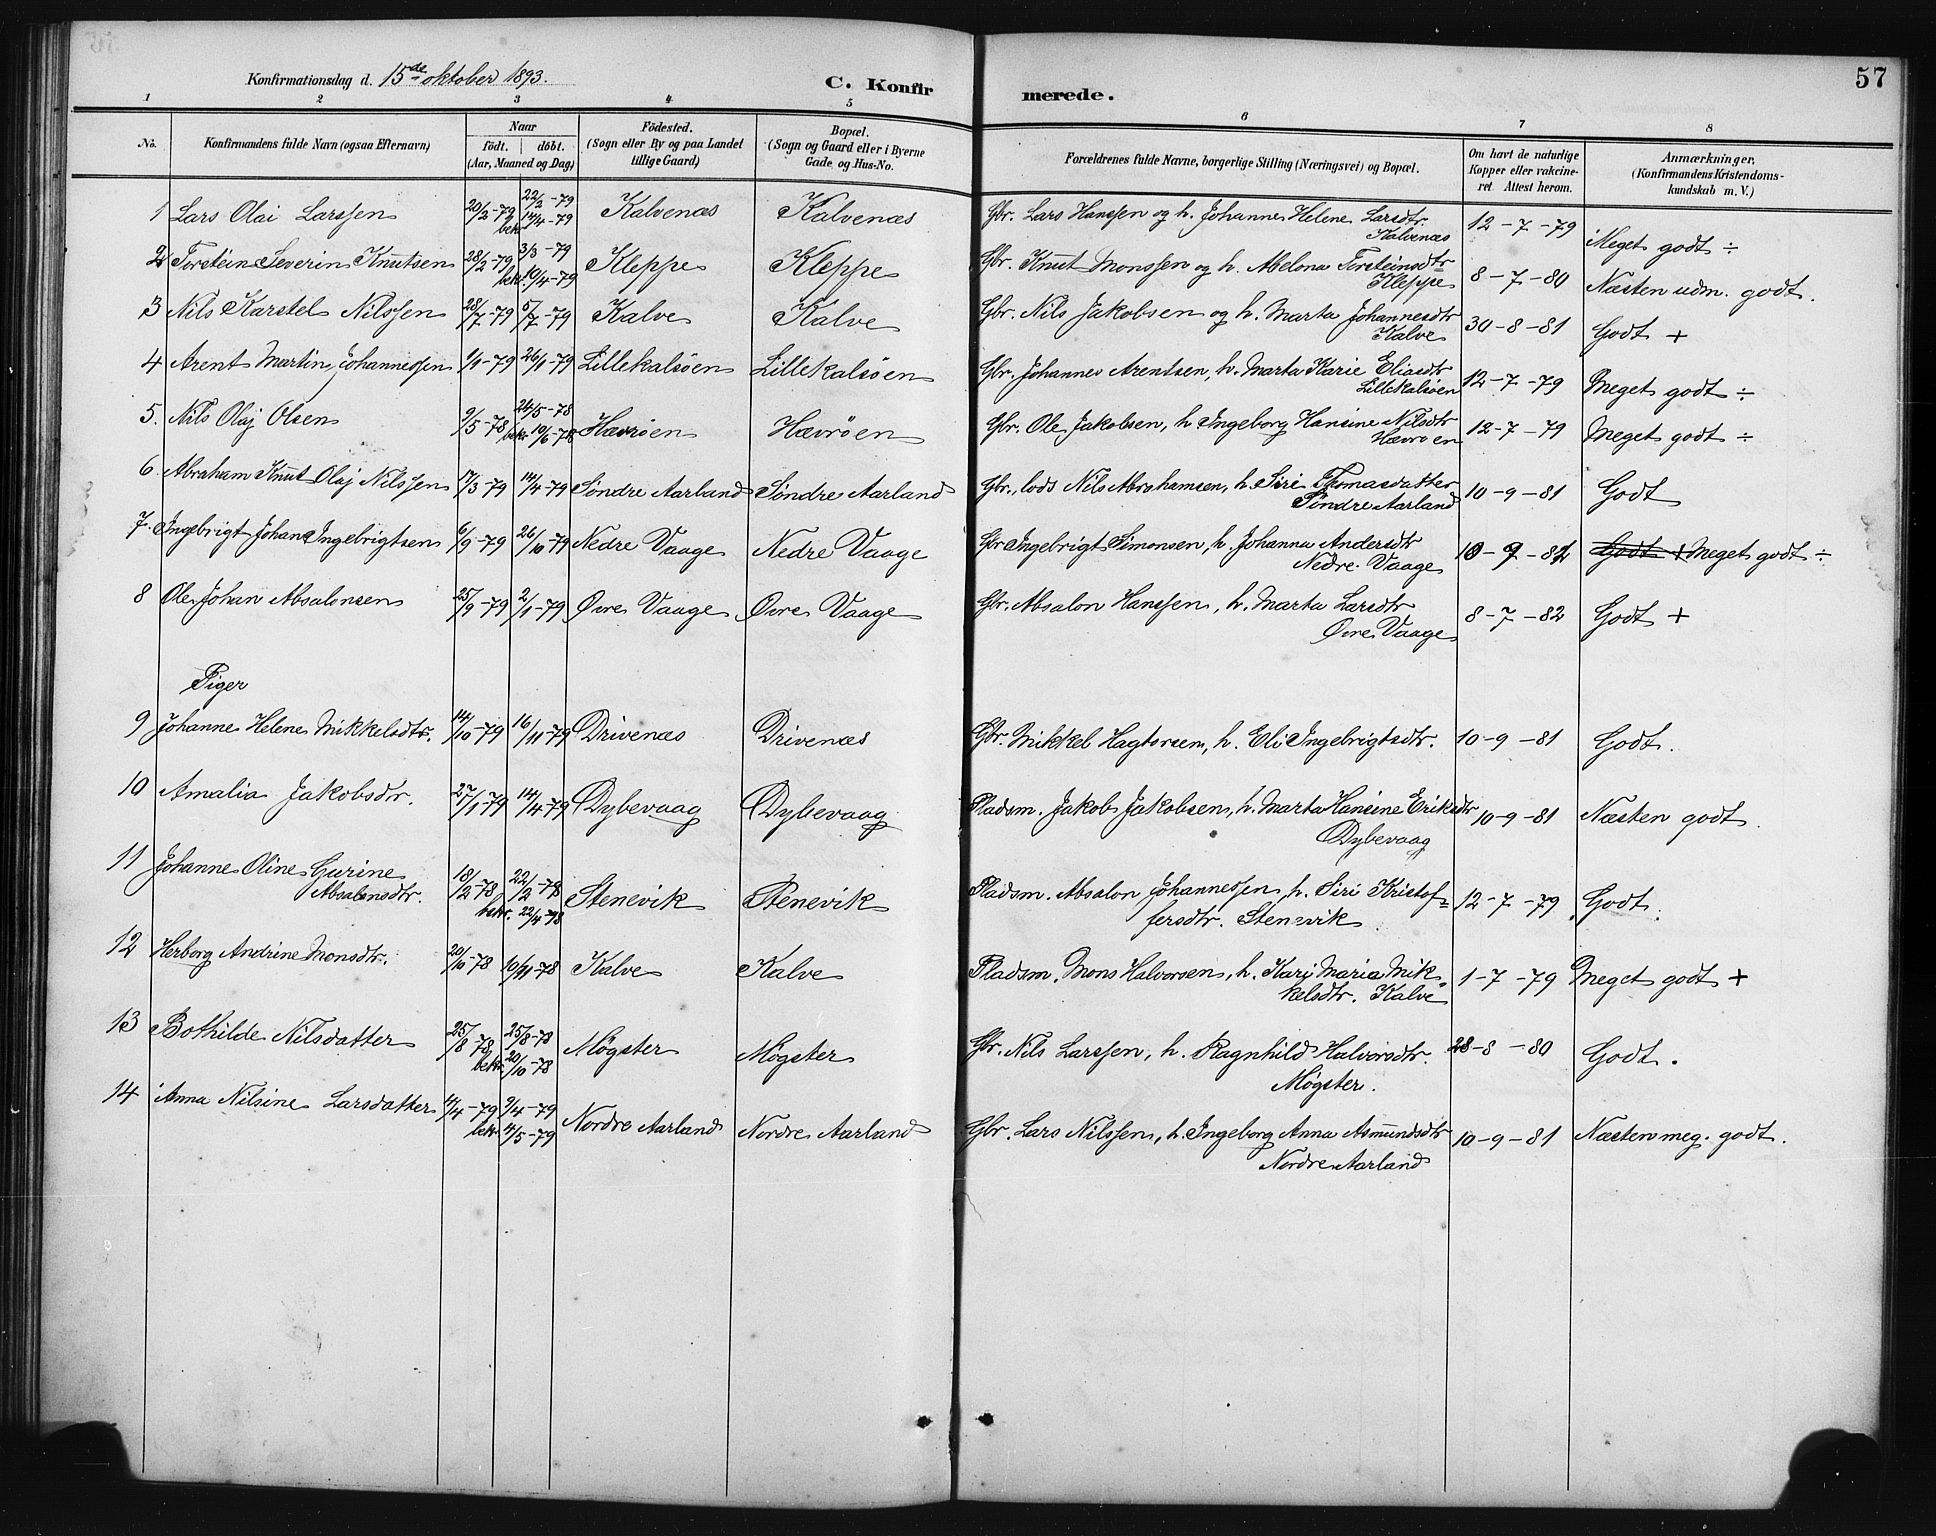 57
Konfirmationsdag d. 15de oktober 1893.
C. Konfirmerede.
1 2 3 4 5 6 7 8
No. | Konfirmandens fulde Navn (ogsaa Efternavn) | Naar født. døbt. (Aar, Maaned og Dag) | Fødested. (Sogn eller By og paa Landet tillige Gaard) | Bopæl. (Sogn og Gaard eller i Byerne Gade og Hus-No. | Forældrenes fulde Navne, borgerlige Stilling (Næringsvei) og Bopæl. | Om havt de naturlige Kopper eller vakcineret. Attest herom. | Anmærkninger, (Konfirmandens Kristendomskundskab m. V.)
1 Lars Olai Larssen 20/2-79 22/2-79 bekr. 14/4-79 Kalvenæs Kalvenæs Gbr. Lars Hanssen og h. Johanne Helene Larsdtr. Kalvenæs 12-7-79 Meget godt ÷
2 Torstein Severin Knutsen 28/2-79 3/3-79 bekr. 10/4-79 Kleppe Kleppe Gbr. Knut Monssen og h. Abelona Torsteinsdtr Kleppe 8-7-80 Næsten udm. godt.
3 Nils Karstel Nilssen 28/7-79 5/7-79 Kalve Kalve Gbr. Nils Jakobsen og h. Marta Johannesdtr Kalve 30-8-81 Godt +
4 Arent Martin Johannessen 1/1-79 26/1-79 Lillekalsöen Lillekalsöen Gbr. Johannes Arentsen, h. Marta Karie Eliasdtr Lillekalsöen 12-7-79 Meget godt ÷
5. Nils Olaj Olsen 9/5-78 24/5-78 bekr. 10/6-78 Hævröen Hævröen Gbr. Ole Jakobsen, h. Ingeborg Hansine Nilsdtr Hævröen 12-7-79 Meget godt ÷
6 Abraham Knut Olaj Nilssen 17/3-79 14/4-79 Söndre Aarland Söndre Aarland Gbr., lods Nils Abrahamsen, h. Siri Thomasdatter Söndre Aarland 10-9-81 Godt
7. Ingebrigt Johan Ingebrigtsen 6/9-79 26/10-79 Nedre Vaage Nedre Vaage Gbr Ingebrigt Simonsen, h. Johanna Andersdtr Nedre Vaage 10-9-82 Godt + Meget godt ÷
8 Ole Johan Absalonsen 25/9-79 2/1-79 Övre Vaage Övre Vaage Gbr. Absalon Hanssen, h. Marta Larsdtr Övre Vaage 8-7-82 Godt +
Piger
9 Johanne Helene Mikkelsdtr. 14/10-79 16/11-79 Drivenæs Drivenæs Gbr. Mikkel Hagtorsen, h. Eli Ingebrigtsdtr. 10-9-81 Godt.
10 Amalia Jakobsdr. 27/1-79 14/4-79 Dybevaag Dybevaag Pladsm. Jakob Jakobsen, h. Marta Hansine Eriksdtr Dybevaag 10-9-81 Næsten godt
11 Johanne Oline Gurine Absalonsdtr. 18/2-78 22/2-78 bekr. 22/4-78 Stenevik Stenevik Pladsm. Absalon Johannessen, h. Siri Kristoffersdtr. Stenevik 12-7-79 Godt.
12 Herborg Andrine Monsdtr. 20/10-78 10/11-78 Kalve Kalve Pladsm. Mons Halvorsen, h. Kari Maria Mikkelsdtr. Kalve 1-7-79 Meget godt +
13 Bothilde Nilsdatter 25/8-78 25/8-78 bekr. 20/10-78 Møgster Møgster Gbr. Nils Larssen, h. Ragnhild Halvorsdtr. Møgster. 28-8-80 Godt.
14 Anna Nilsine Larsdatter 4/4-79 9/4-79 bekr. 4/5-79 Nordre Aarland Nordre Aarland Gbr. Lars Nilssen, h. Ingeborg Anna Asmundsdtr Nordre Aarland 10-9-81 Næsten meg. godt.